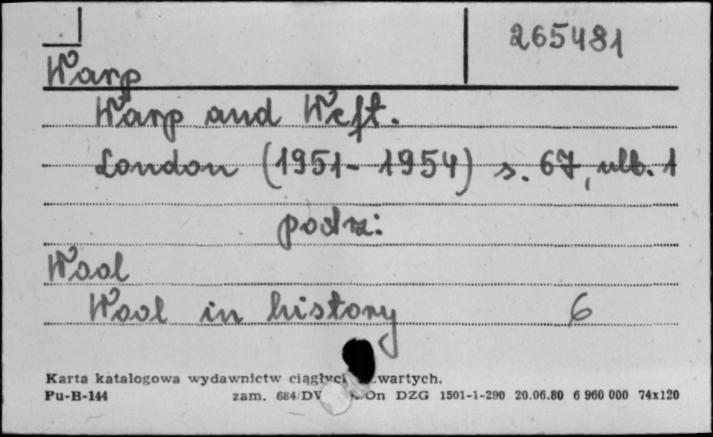 265481
Warp
Warp and Weft.
London (1951-1954) s. 67, nlb. 1
podz:
Wool
Wool in history 6
Karta katalogowa wydawnictw wartych.
Pu-B-144 zam. 684 DZG 1501-1-290 20.06.80 6 960 000 74x120